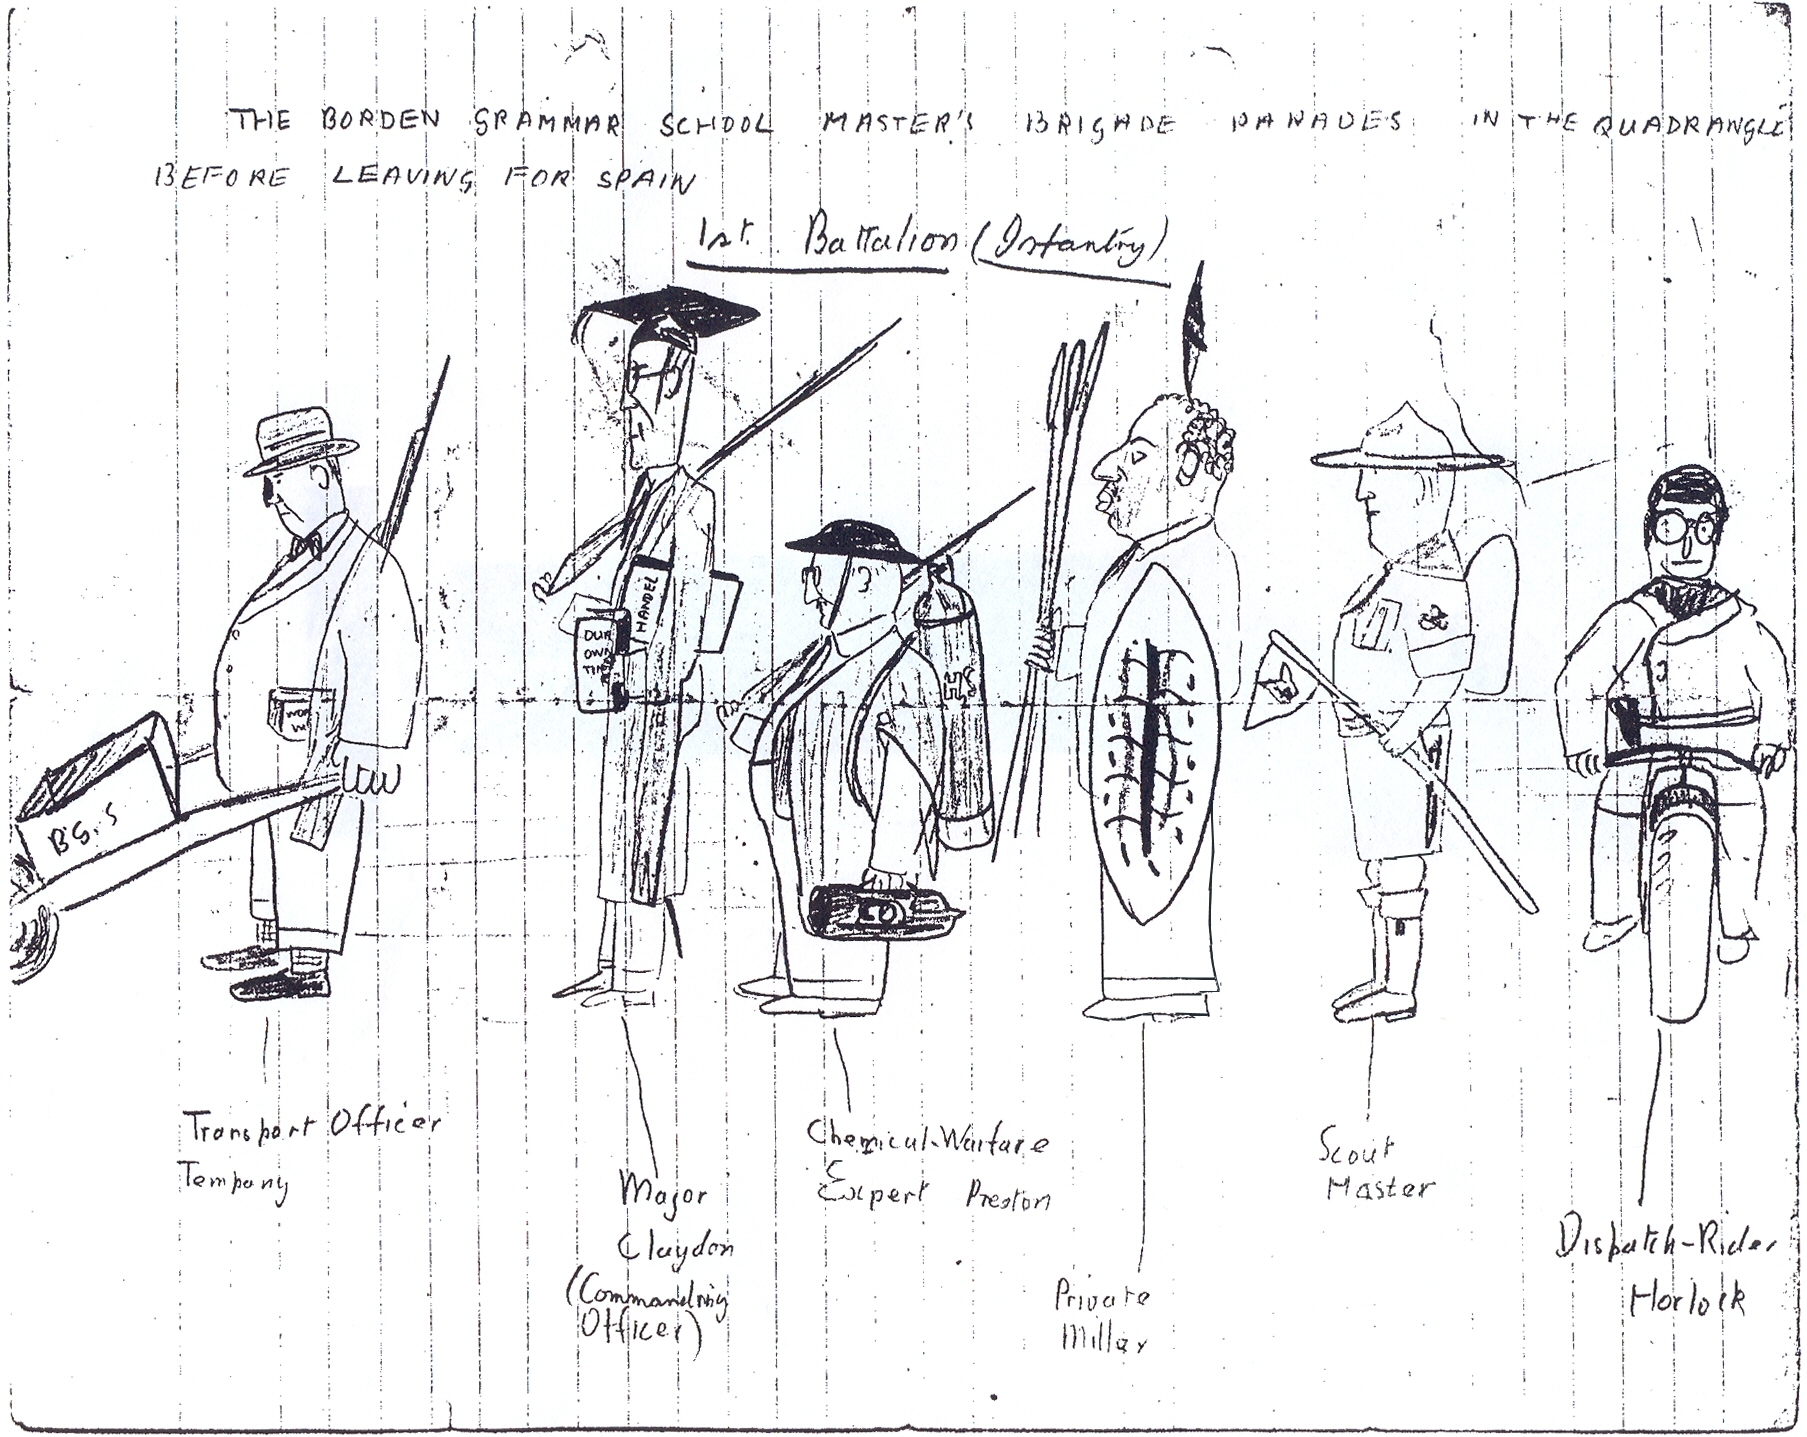 THE BORDEN GRAMMAR SCHOOL MASTER'S BRIGADE PARADES IN THE QUADRANGLE
BEFORE LEAVING FOR SPAIN
1st. Battalion (Infantry)
HANDEL
OUR
OWN
TIMES
H₂S
B.G.S
Transport Officer
Tempany
Major
Claydon
(Commanding
Officer)
Chemical-Warfare
Expert Preston
Private
Miller
Scout
Master
Dispatch-Rider
Horlock